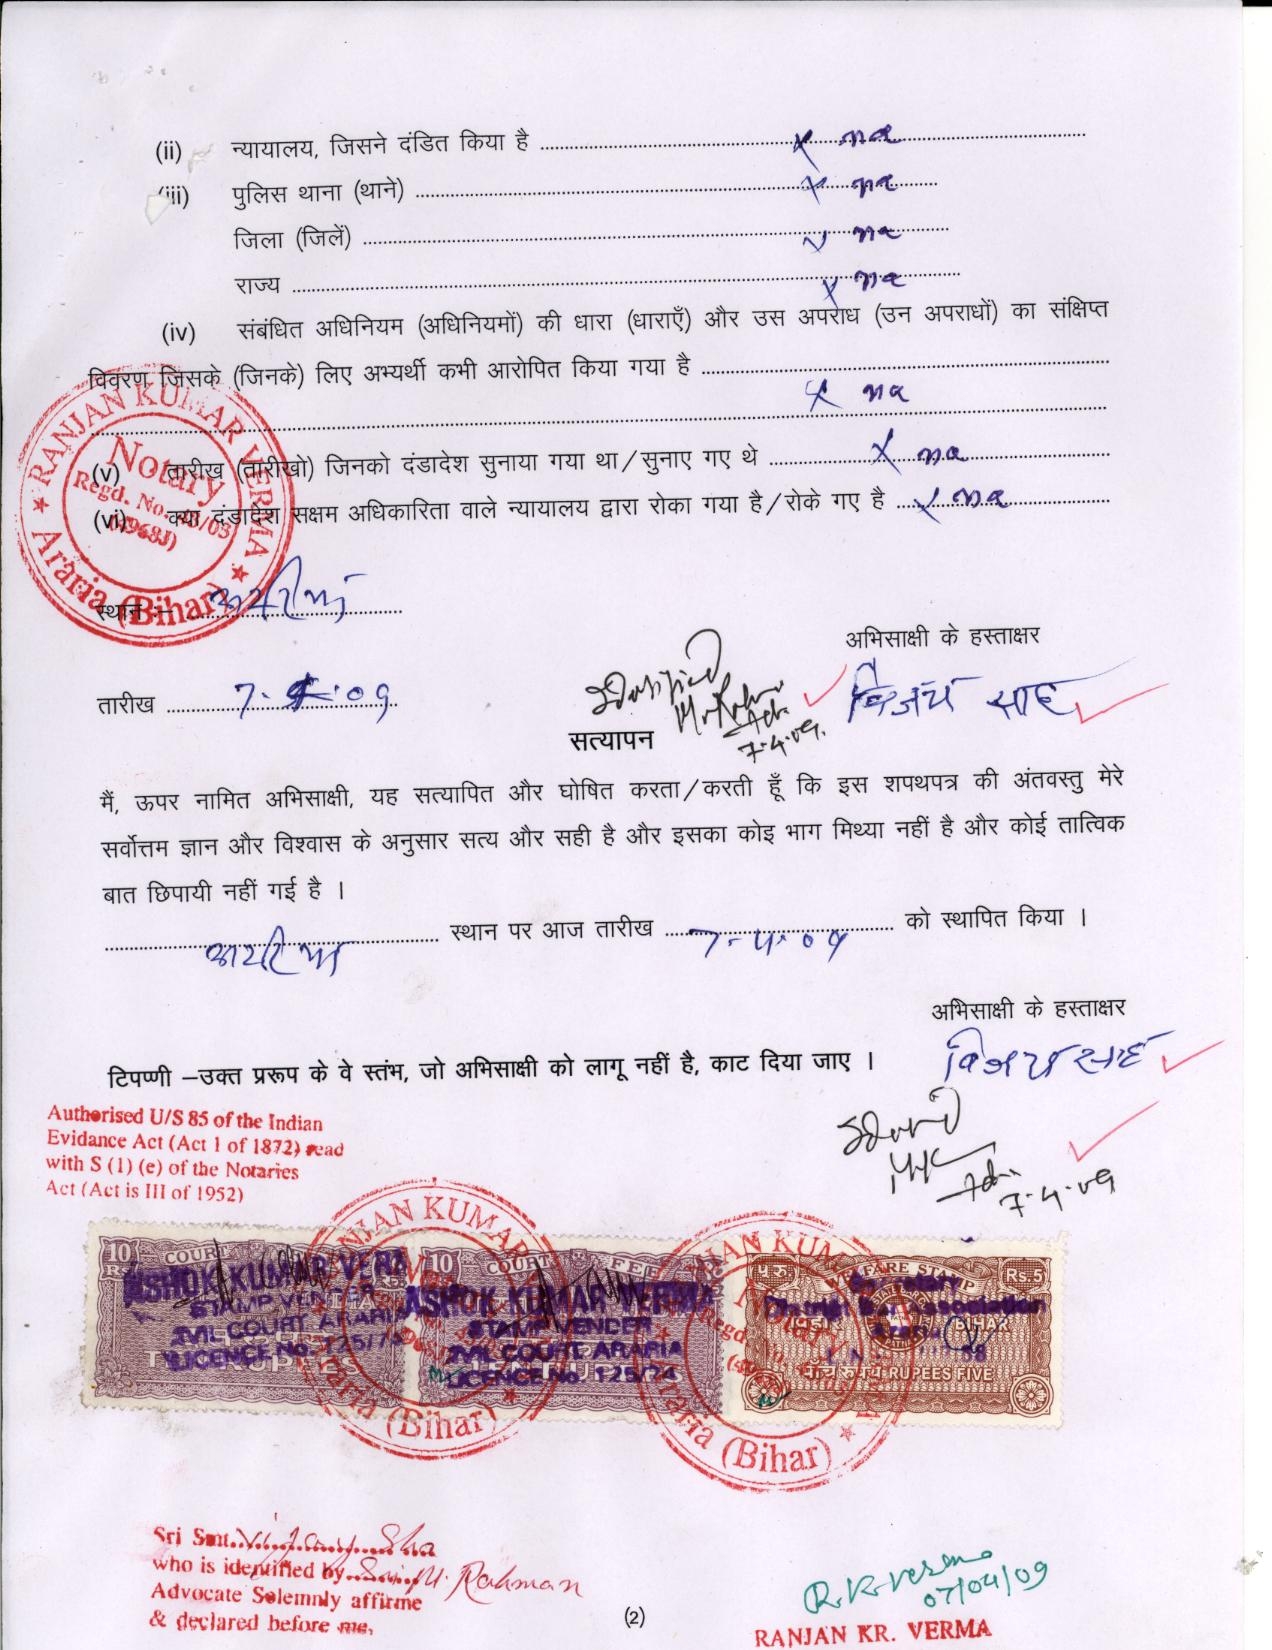 (ii) न्यायालय, जिसने दंडित किया है ........ x na
(iii) पुलिस थाना (थाने) ........ x na
जिला (जिलें) ........ x na
राज्य ........ x na
(iv) संबंधित अधिनियम (अधिनियमों) की धारा (धाराएँ) और उस अपराध (उन अपराधों) का संक्षिप्त
विवरण जिसके (जिनके) लिए अभ्यर्थी कभी आरोपित किया गया है ........
........ x na
(v) तारीख (तारीखो) जिनको दंडादेश सुनाया गया था/सुनाए गए थे ........ x na
(vi) क्या दंडादेश सक्षम अधिकारिता वाले न्यायालय द्वारा रोका गया है/रोके गए है ........ x na
RANJAN KUMAR VERMA
Notary
Regd. No.
Araria (Bihar)
स्थान :- अररिया
अभिसाक्षी के हस्ताक्षर
तारीख 7-4-09
विजय साह
7-4-09
सत्यापन
मैं, ऊपर नामित अभिसाक्षी, यह सत्यापित और घोषित करता/करती हूँ कि इस शपथपत्र की अंतवस्तु मेरे
सर्वोत्तम ज्ञान और विश्वास के अनुसार सत्य और सही है और इसका कोइ भाग मिथ्या नहीं है और कोई तात्विक
बात छिपायी नहीं गई है ।
अररिया स्थान पर आज तारीख 7-4-09 को स्थापित किया ।
अभिसाक्षी के हस्ताक्षर
टिपण्णी –उक्त प्ररूप के वे स्तंभ, जो अभिसाक्षी को लागू नहीं है, काट दिया जाए ।
विजय साह
7-4-09
Authorised U/S 85 of the Indian
Evidance Act (Act 1 of 1872) read
with S (1) (e) of the Notaries
Act (Act is III of 1952)
10 COURT
ASHOK KUMAR VERMA
STAMP VENTER
CIVIL COURT ARARIA
LICENCE No. 125/74
10 COURT FEE
ASHOK KUMAR VERMA
STAMP VENDER
CIVIL COURT ARARIA
LICENCE No. 125/74
WELFARE STAMP RS.5
Secretary
District Bar Association
BIHAR
पाँच रुपये RUPEES FIVE
Araria (Bihar)
Araria (Bihar)
Sri Smt. Vijay Sha
who is identified by Sri M. Rahman
Advocate Solemnly affirme
& declared before me,
(2)
R.K. Verma
07/04/09
RANJAN KR. VERMA